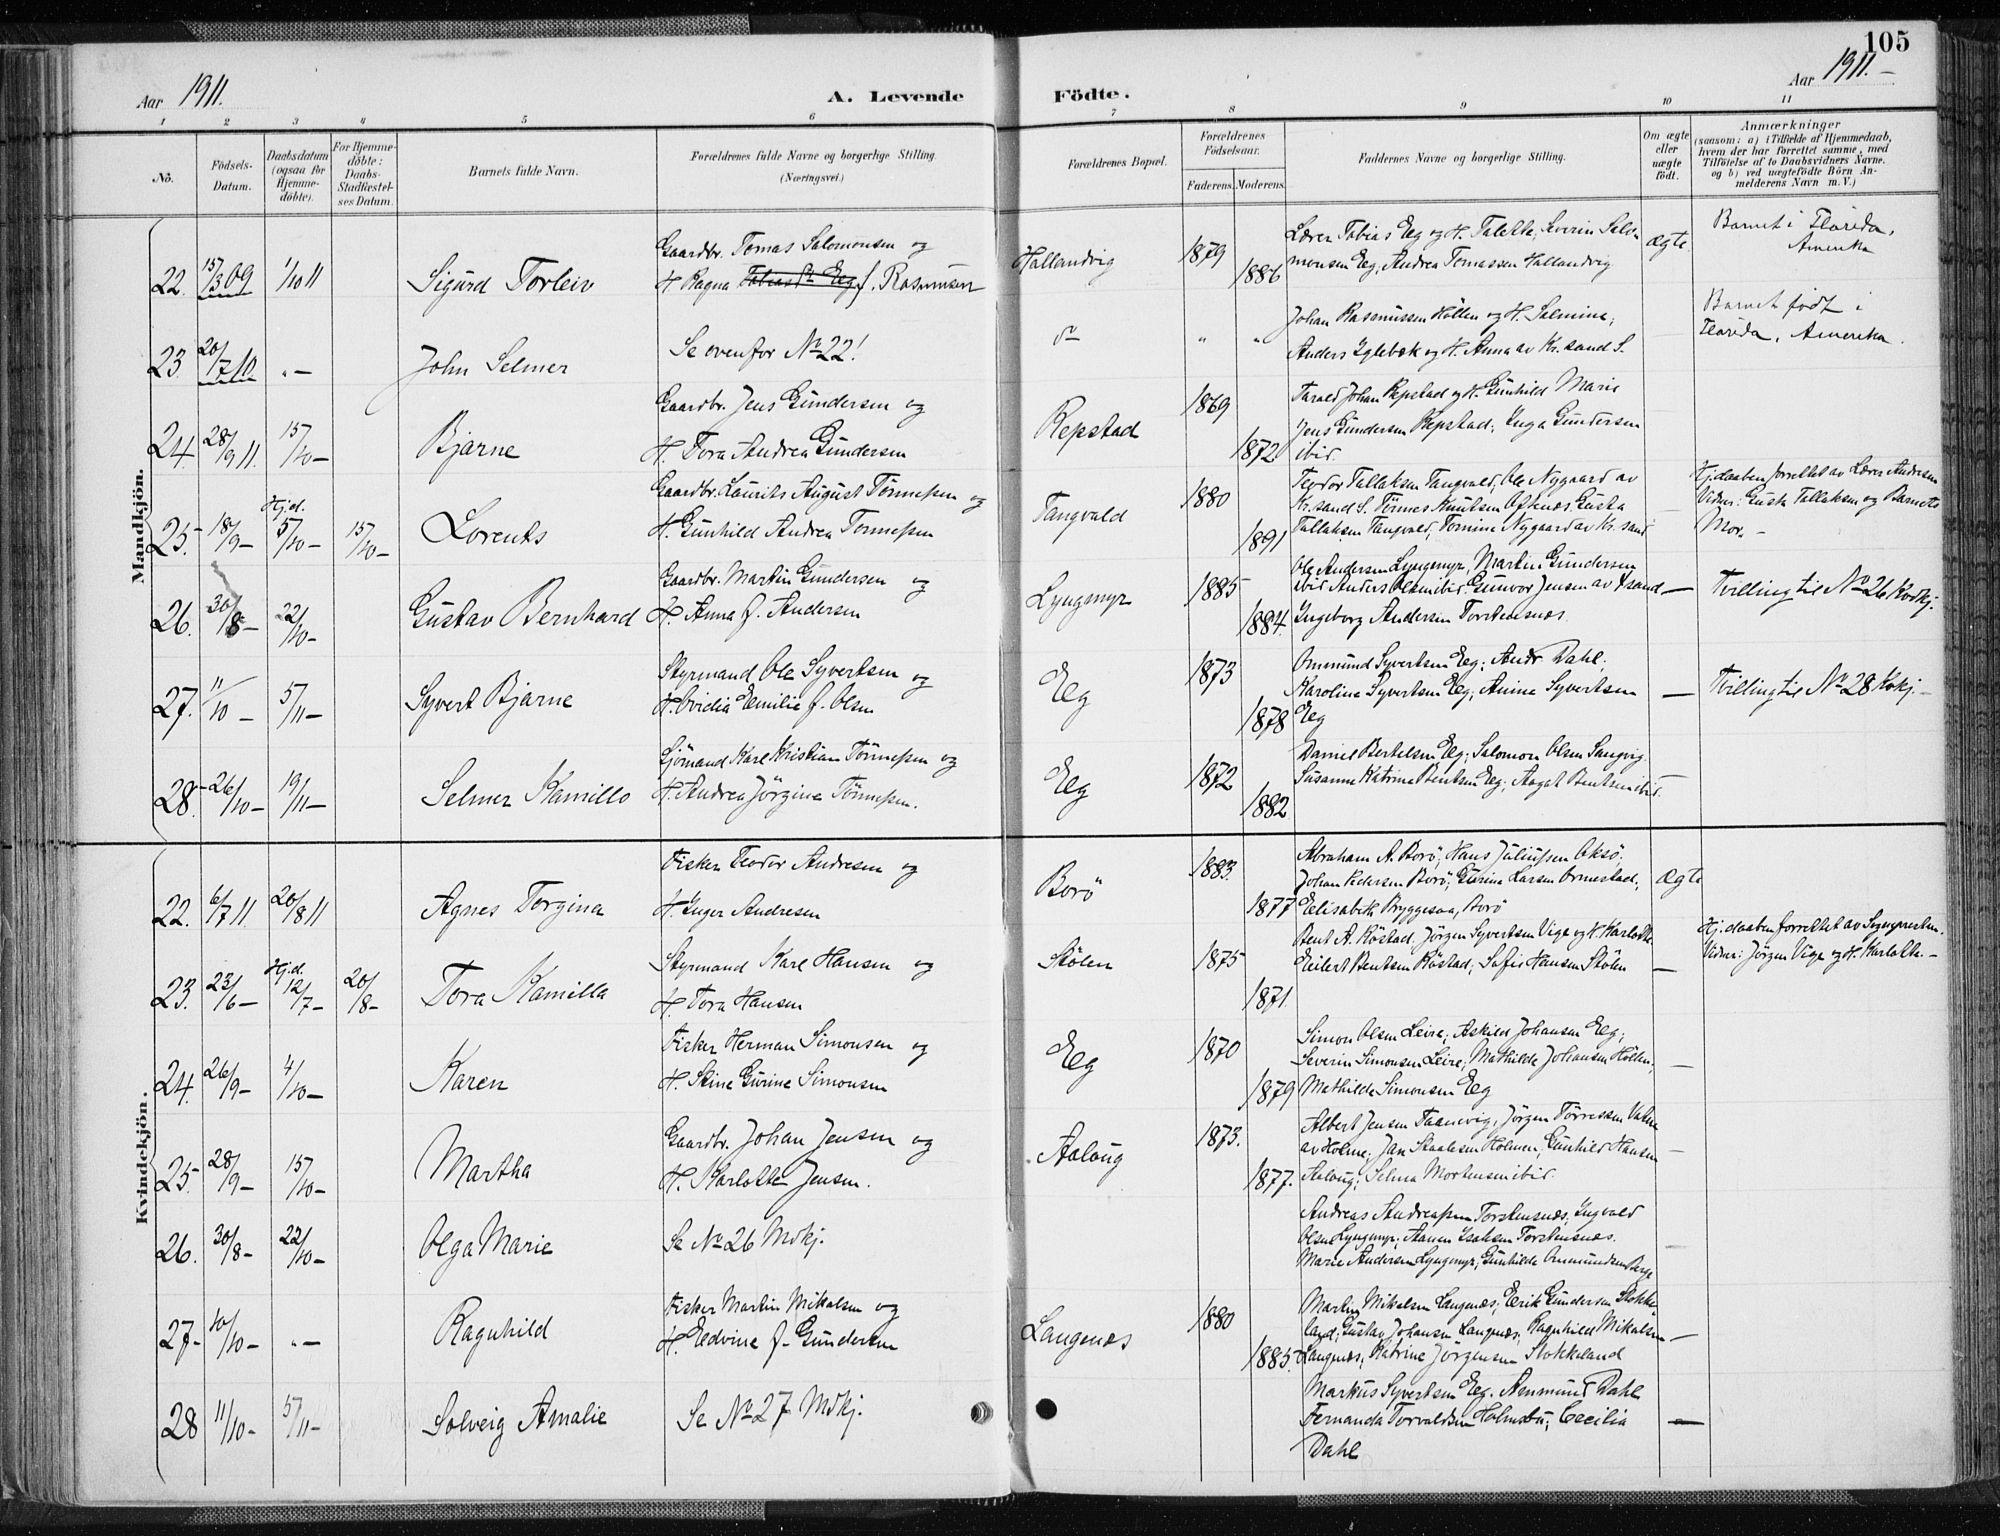 105
Aar 1911.
A. Levende Födte.
Aar 1911.
1 2 3 4 5 6 7 8 9 10 11
No.
Födsels-
Datum.
Daabsdatum
(ogsaa for
Hjemme-
döbte).
For Hjemme-
döbte:
Daabs-
Stadfæstel-
ses Datum.
Barnets fulde Navn.
Forældrenes fulde Navne og borgerlige Stilling.
(Næringsvei.)
Forældrenes Bopæl.
Forældrenes
Födselsaar.
Faderens. Moderens.
Faddernes Navne og borgerlige Stilling.
Om ægte
eller
uægte
födt.
Anmærkninger
(saasom: a) i Tilfælde af Hjemmedaab,
hvem der har forrettet samme, med
Tilföielse af to Daabsvidners Navne.
og b) ved uægtefödte Börn An-
melderens Navn m. V.)
Mandkjön.
22. 15/3 09 1/10 11 Sigurd Torleiv
Gaardbr. Tomas Salomonsen og
H. Ragna f. Rasmussen
Hallandvig 1879 1886
Lærer Tobias Eeg og H. Talette; Severin Salo-
monsen Eeg; Andrea Tomassen Hallandvig
ægte
Barnet i Florida,
Amerika
23. 20/7 10 "– John Selmer
Se ovenfor No 22!
" "
Johan Rasmussen Höllen og H. Salmine;
Anders Eglebæk og H. Anna av Kr.sand S.
Barnet født i
Florida, Amerika.
24. 28/9 11. 15/10– Bjarne
Gaardbr. Jens Gundersen og
H. Tora Andrea Gundersen
Repstad 1869 1872
Tarald Johan Repstad og H. Gunhild Marie
Jens Gundersen Repstad; Inga Gundersen
ibid.
25. 18/9– Hj.d. 5/10– 15/10– Lorents
Gaardbr. Laurits August Tönnessen og
H. Gunhild Andrea Tönnessen
Tangvald 1880 1891
Teodor Tallaksen Tangvald; Ole Nygaard av
Kr.sand S. Tönnes Knutsen Gusta
Tallaksen Tangvald; Tomine Nygaard av Kr.sand
Hj.daaben forrettet av Lærer Andresen
Vidner: Gusta Tallaksen og Barnets
Mor. –
26. 30/8– 22/10– Gustav Bernhard
Gaardbr. Martin Gundersen og
H. Anna f. Andersen
Lyngmyr 1885 1884.
Ole Andersen Lyngmyr, Martin Gundersen
ibid Anders Olsen ibid. Gunvor Jensen av Krsand
Ingeborg Andersen Torstensnæs
Tvilling til No 26 Kvdkj.
27. 11/10– 5/11– Syvert Bjarne
Styrmand Ole Syvertsen og
H. Ovidia Emilie f. Olsen
Eeg 1873 1878
Ommund Syvertsen Eeg; Andr Dahl;
Karoline Syvertsen Eeg; Anine Syvertsen
Eeg
Tvilling til No 28 Kvkj.
28. 26/10– 19/11– Selmer Kamillo
Sjömand Karl Kristian Tönnessen og
H. Andrea Jörgine Tönnessen.
Eeg 1872 1882
Daniel Bertelsen Eeg; Salomon Olsen Langvig
Susanne Katrine Bentsen Eeg; Aagot Bentsen ibid.
Kvindekjön.
22. 6/7 11 20/8 11 Agnes Torgina
Fisker Teodor Andresen og
H. Inger Andresen
Borö 1883 1877
Abraham A. Borö; Hans Juliussen Oksö;
Johan Pedersen Borö; Gurine Larsen Ormestad;
Elisabeth Bryggesaa, Borö
ægte
23. 23/6– Hj.d. 12/7– 20/8– Tora Kamilla
Styrmand Karl Hansen og
H. Tora Hansen
Stölen 1875 1871.
Bent A. Röstad; Jörgen Syvertsen Vige og H. Karlotte
Eilert Bentsen Röstad; Sofie Hansen Stölen
Hj.daaben forrettet av Sognepresten.
Vidner: Jörgen Vige og H. Karlotte. –
24. 26/9– 4/10– Karen
Fisker Herman Simonsen og
H. Stine Gurine Simonsen
Eeg 1870 1879
Simon Olsen Leire; Askild Johansen Eeg;
Severin Simonsen Leire; Mathilde Johansen Höllen
Mathilde Simonsen Eeg
25. 28/9– 15/10– Martha
Gaardbr. Johan Jensen og
H. Karlotte Jensen.
Aaloug 1873. 1877.
Albert Jensen Taanevig; Jörgen Törressen Vatne
av Holme; Jan Staalesen Holmen; Gunhild Hansen
Aaloug; Selma Mortensen ibid.
26. 30/8– 22/10– Olga Marie
Se No 26 Mdkj.
Andreas Andreassen Torstensnæs; Ingvald
Olsen Lyngmyr; Aanen Isaksen Torstensnæs.
Marie Andersen Lyngmyr; Gunhilde Ommundsen Berge
27– 10/10– "– Ragnhild
Fisker Martin Mikalsen og
H. Edvine f. Gundersen
Langenæs 1880 1885.
Martin Mikalsen Langenæs; Erik Gundersen Stokke-
land; Gustav Johansen Langenæs; Ragnhild Mikalsen
Langenæs; Katrine Jörgensen Stokkeland
28 11/10– 5/11– Solveig Amalie
Se No 27 Mdkj.
Markus Syvertsen Eeg. Aanmund Dahl
Fernanda Torvaldsen Holmsbu; Cecilia
Dahl